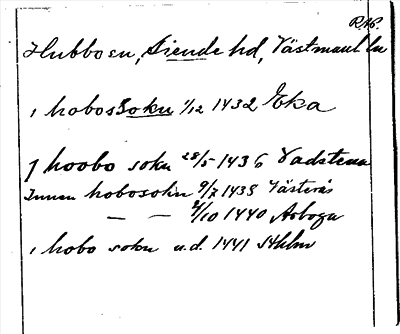 R.16.
Hubbo sn, Siende hd, Västmanl. ln
i hobos Soku 1/12 1432 Eka
J hoobo soku 28/5 1436 Vadstena
Innan hobosokn 9/7 1438 Västerås
— — 4/10 1440 Arboga
i hobo soku u.d. 1441 Sthlm